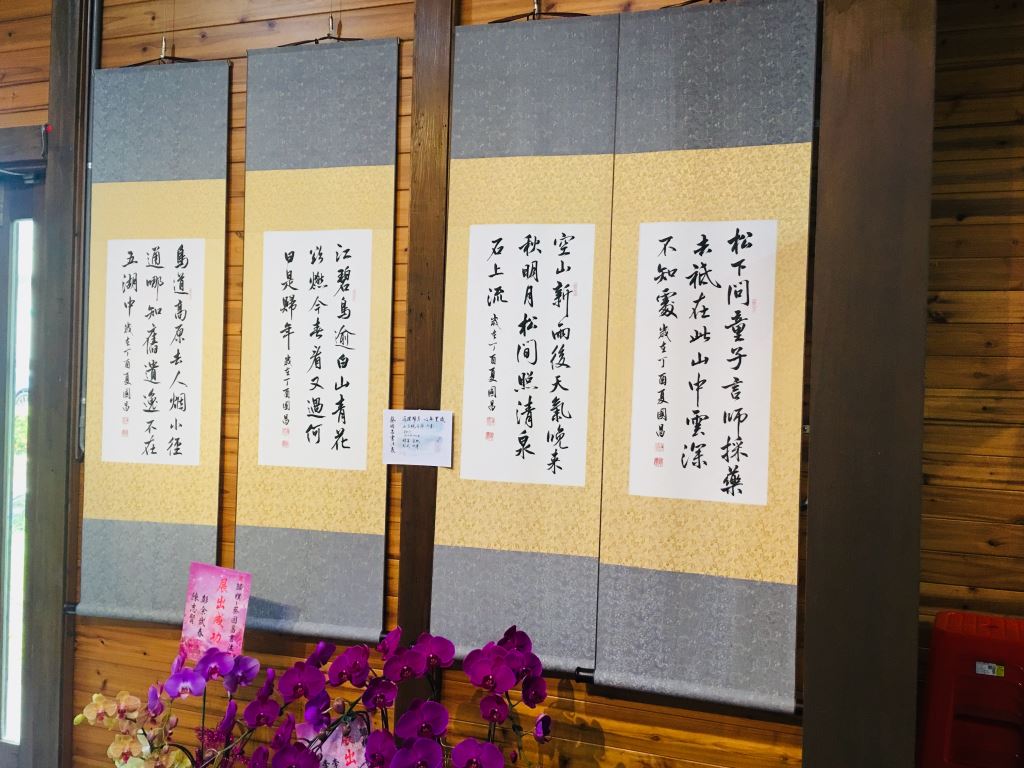 松下問童子言師採藥
去祗在此山中雲深
不知處
歲在丁酉夏國昌
空山新雨後天氣晚來
秋明月松間照清泉
石上流
歲在丁酉夏國昌
江碧鳥逾白山青花
欲燃今春看又過何
日是歸年
歲在丁酉國昌
鳥道高原去人烟小徑
通哪知舊遺逸不在
五湖中
歲在丁酉夏國昌
展出成功